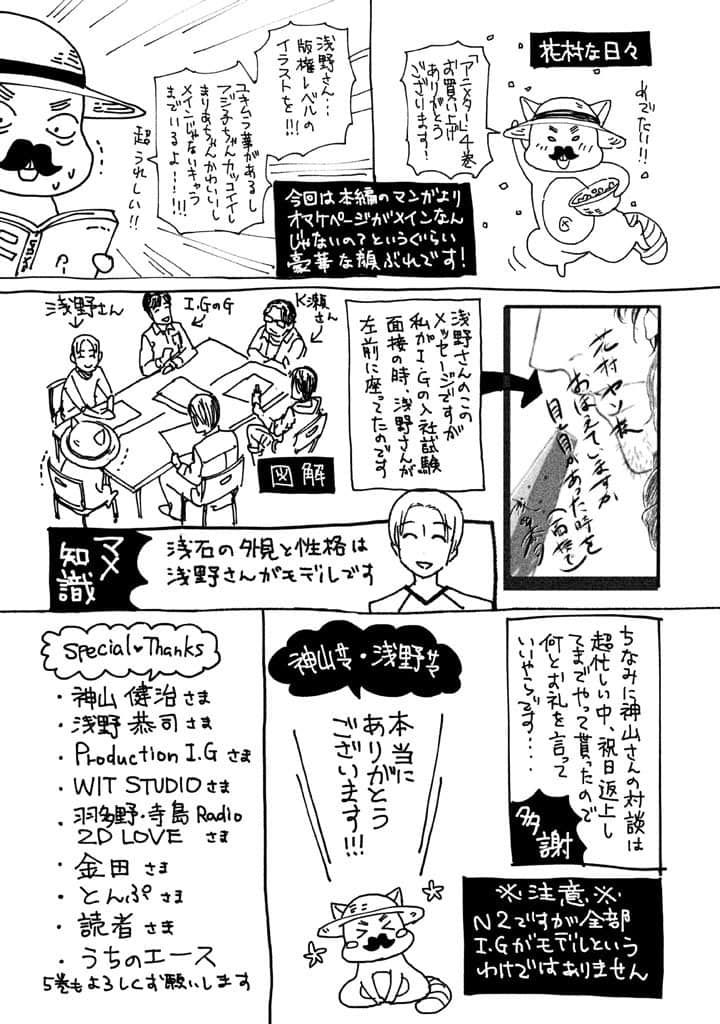 花村な日々
めでたい!!
「アニメタ!」4巻
お買い上げ
ありがとう
ございます!
浅野さん…
版権レベルの
イラストを!!!
ユキムラ華があるし
フジ子ちゃんカッコイイし
まりあちゃんかわいいし
メインじゃないキャラ
までいるよ…!!!
超うれしい!!
今回は本編のマンガより
オマケページがメインなん
じゃないの?というぐらい
豪華な顔ぶれです!
花村ヤソ様
おぼえていますか
目と目があった時を
浅野さんのこの
メッセージですが
私がI.Gの入社試験
面接の時、浅野さんが
左前に座ってたのです
K瀬さん
I.GのG
浅野さん
図解
マメ
知識
浅石の外見と性格は
浅野さんがモデルです
ちなみに神山さんの対談は
超忙しい中、祝日返上し
てまでやって貰ったので
何とお礼を言って
いいやらです…
多謝
※注意※
N2ですが全部
I.Gがモデルという
わけではありません
神山サマ・浅野サマ
本当に
ありがとう
ございます!!!
Special♥Thanks
・神山健治さま
・浅野恭司さま
・Production I.Gさま
・WIT STUDIOさま
・羽多野・寺島 Radio
2D LOVE さま
・金田さま
・とんぷさま
・読者さま
・うちのエース
5巻もよろしくお願いします